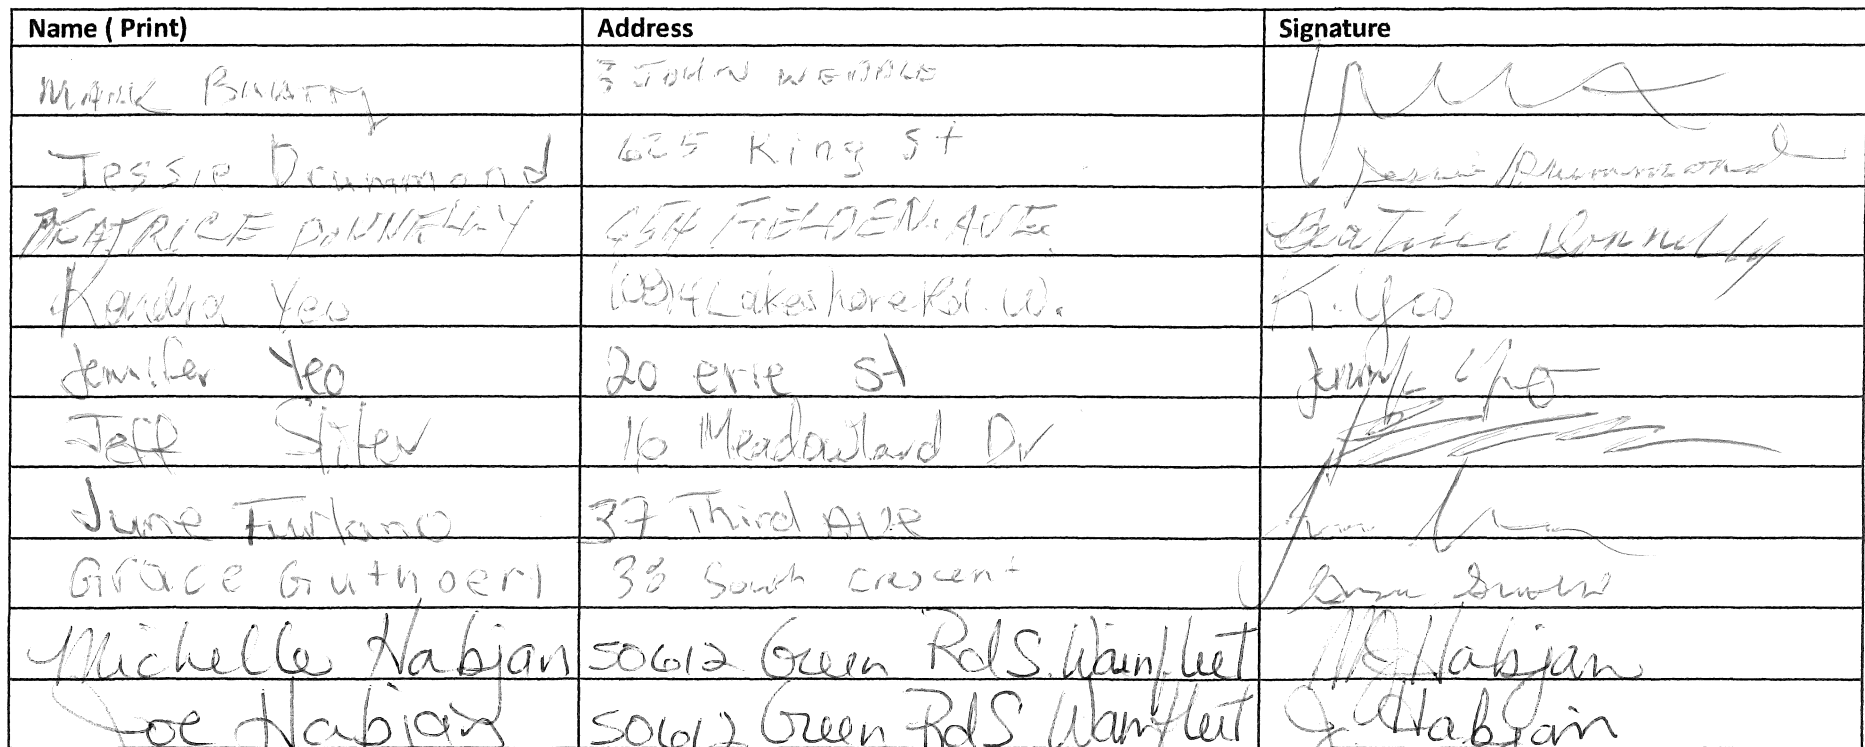 Name ( Print) Address Signature
MARK JOHN
Jessie Drummond 625 King St Jessie Drummond
BEATRICE DONNELLY 454 FIELDEN. AVE. Beatrice Donnelly
Kendra Yeo Lakeshore Rd. W. K. Yeo
Jennifer Yeo 20 erie st
Jeff 16 Meadowlard Dr
June Furlano 37 Third AVE
Grace 38 South crescent
Michelle Habjan 50612 Green Rd S. Wainfleet M Habjan
Joe Habjan 50612 Green Rd S Wainfleet J Habjan